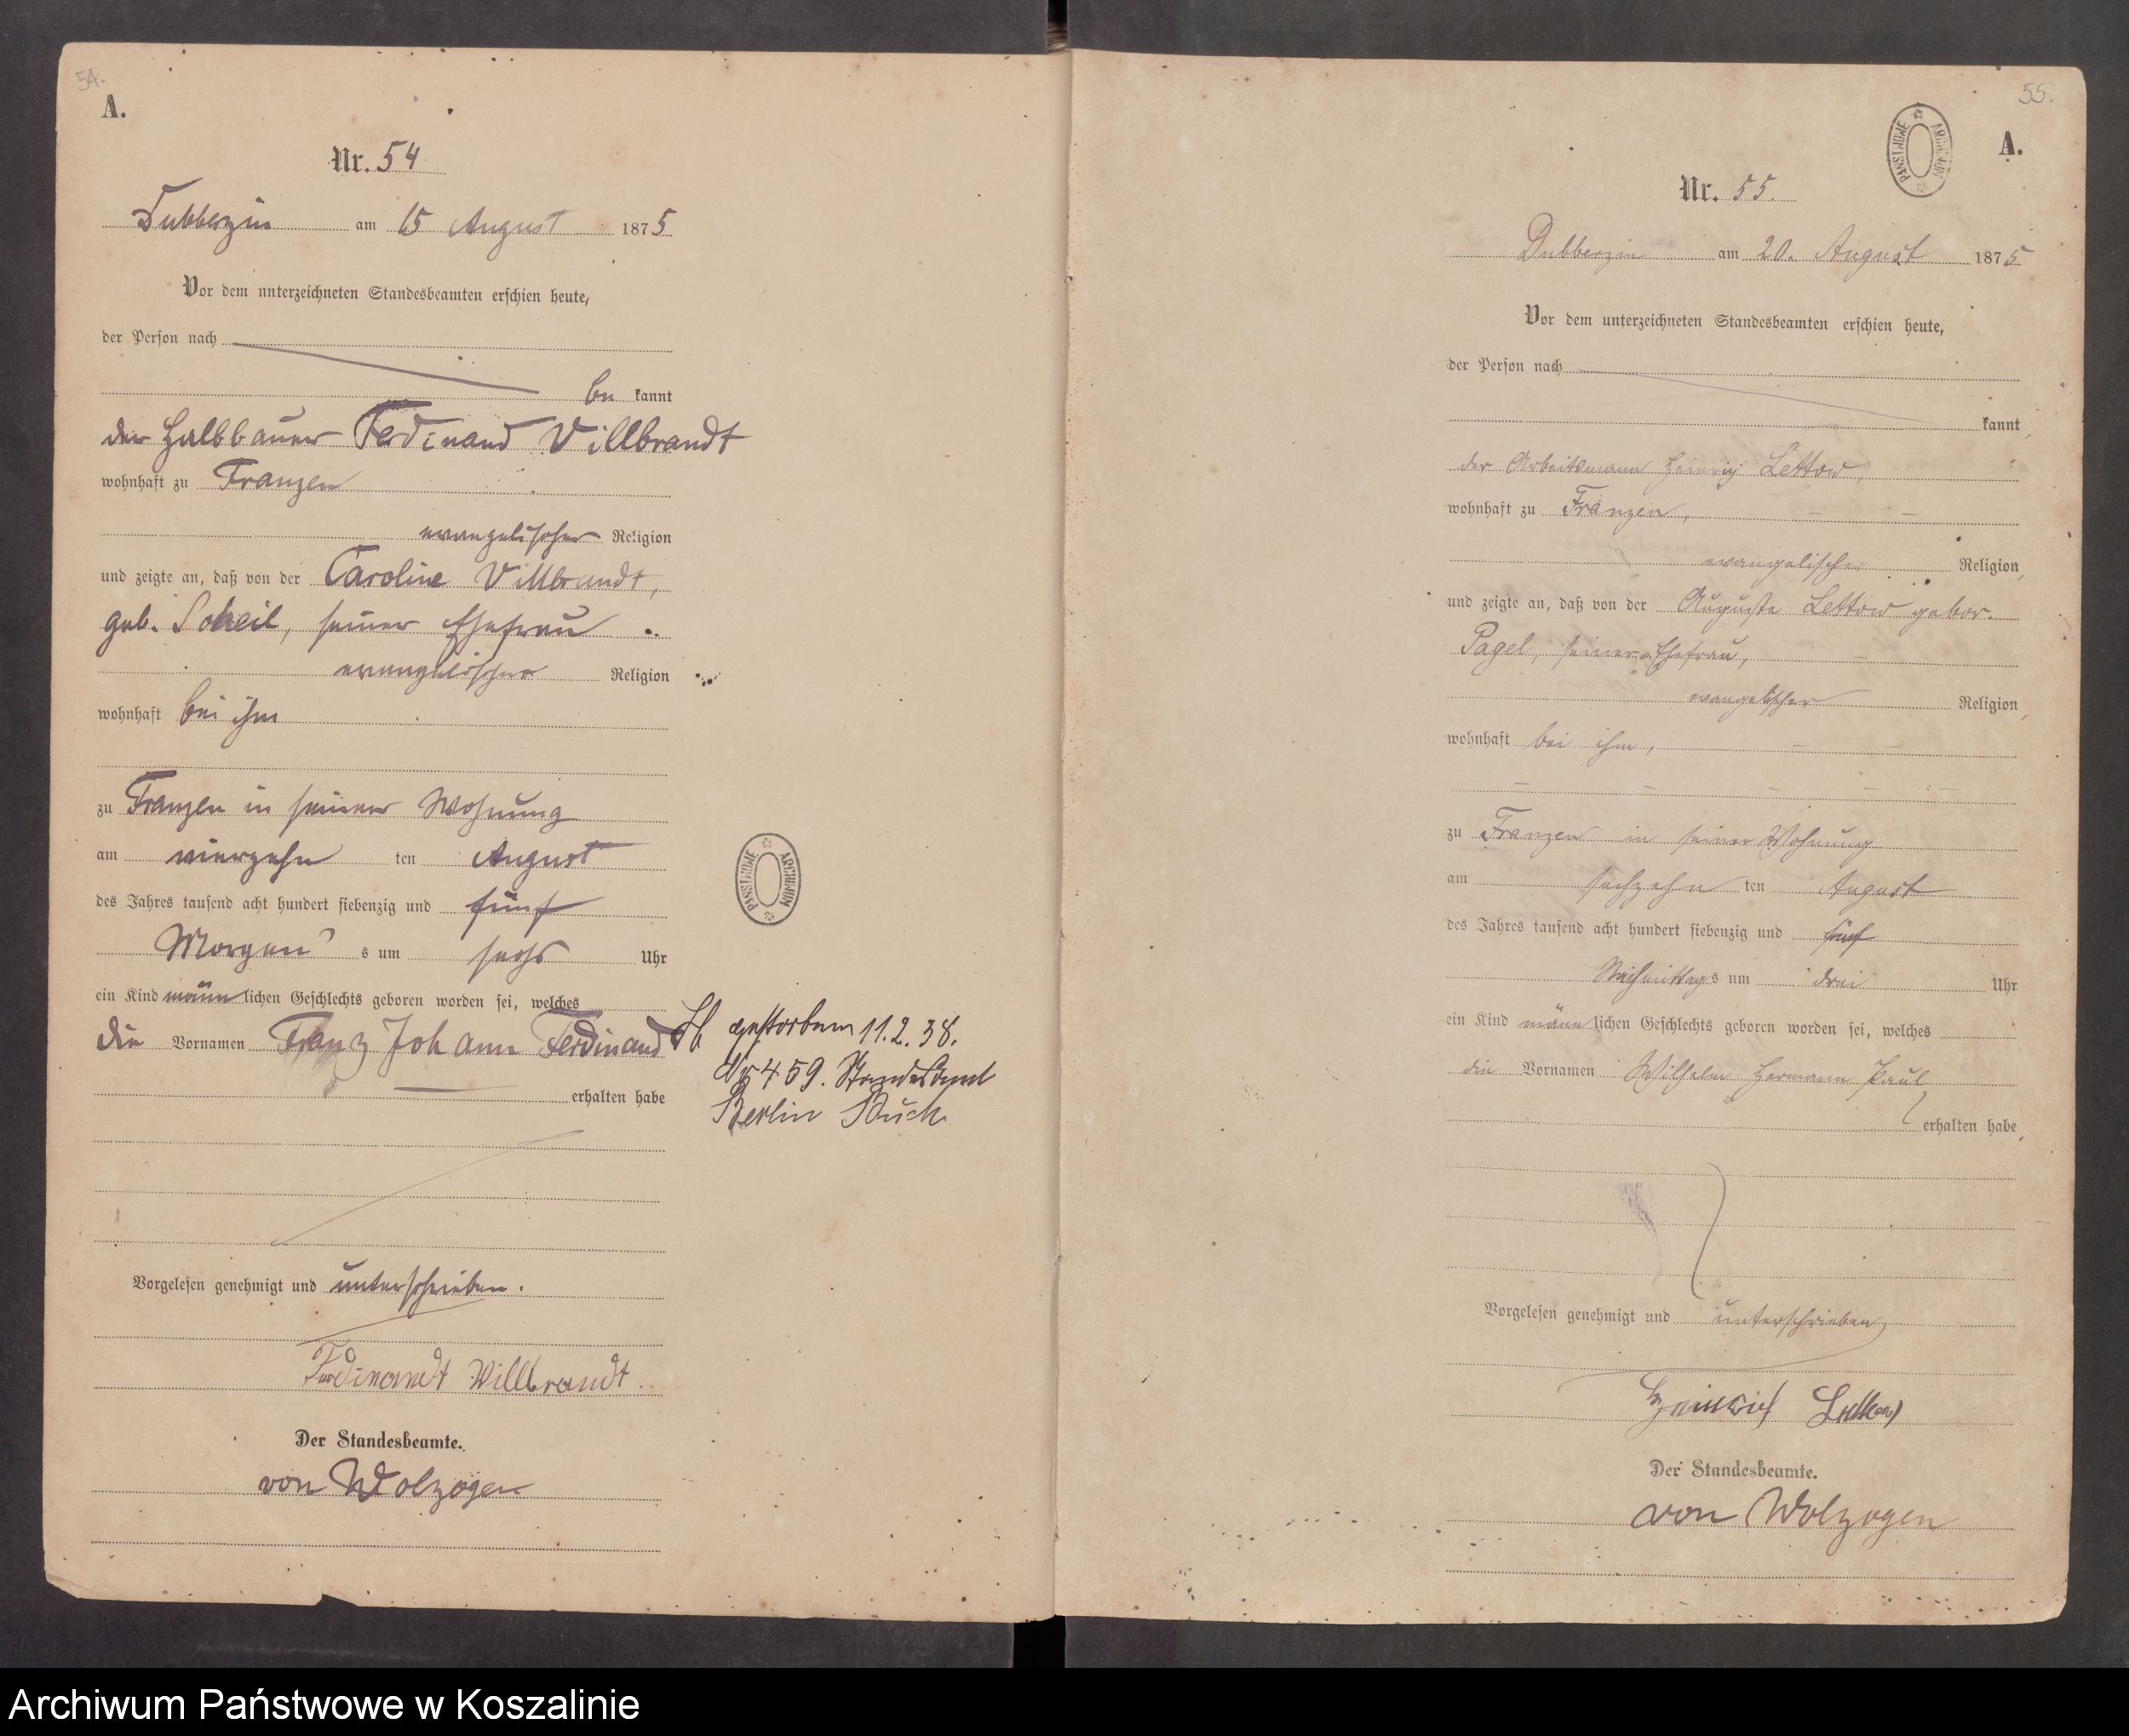 54.
A.
Nr. 54
Dubberzin am 15 August 1875
Vor dem unterzeichneten Standesbeamten erschien heute,
der Person nach
be kannt
der Halbbauer Ferdinand Villbrandt
wohnhaft zu Franzen
evangelischer Religion
und zeigte an, daß von der Caroline Villbrandt,
geb. Scheil, seiner Ehefrau
evangelischer Religion
wohnhaft bei ihm
zu Franzen in seiner Wohnung
am vierzehn ten August
des Jahres tausend acht hundert siebenzig und fünf
Morgen s um sechs Uhr
ein Kind männlichen Geschlechts geboren worden sei, welches
die Vornamen Franz Johann Ferdinand
erhalten habe
gestorben 11.2.38.
Nr 459. Standesamt
Berlin Buch
Vorgelesen genehmigt und unterschrieben.
Ferdinandt Willbrandt
Der Standesbeamte.
von Wolzogen
PAŃSTWOWE ARCHIWUM
55.
A.
PAŃSTWOWE ARCHIWUM
Nr. 55.
Dubberzin am 20. August 1875
Vor dem unterzeichneten Standesbeamten erschien heute,
der Person nach
kannt,
der Arbeitsmann Heinrich Lettow,
wohnhaft zu Franzen,
evangelischer Religion,
und zeigte an, daß von der Auguste Lettow gebor.
Pagel, seiner Ehefrau,
evangelischer Religion,
wohnhaft bei ihm,
zu Franzen in seiner Wohnung
am sechzehn ten August
des Jahres tausend acht hundert siebenzig und fünf
Nachmittags um drei Uhr
ein Kind männlichen Geschlechts geboren worden sei, welches
die Vornamen Wilhelm Hermann Paul
erhalten habe,
Vorgelesen genehmigt und unterschrieben
Heinrich Lettow
Der Standesbeamte.
von Wolzogen
Archiwum Państwowe w Koszalinie